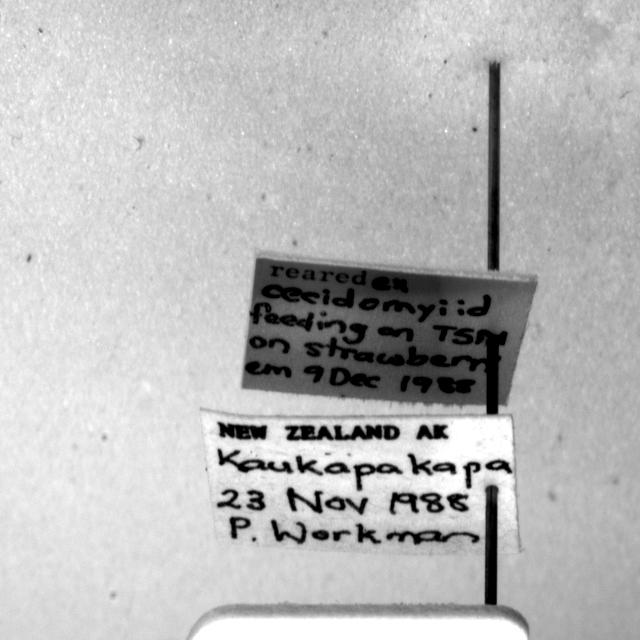 reared ex
cecidomyiid
feeding on TSM
on strawberry
em 9 Dec 1985
NEW ZEALAND AK
Kaukapakapa
23 Nov 1985
P. Workman